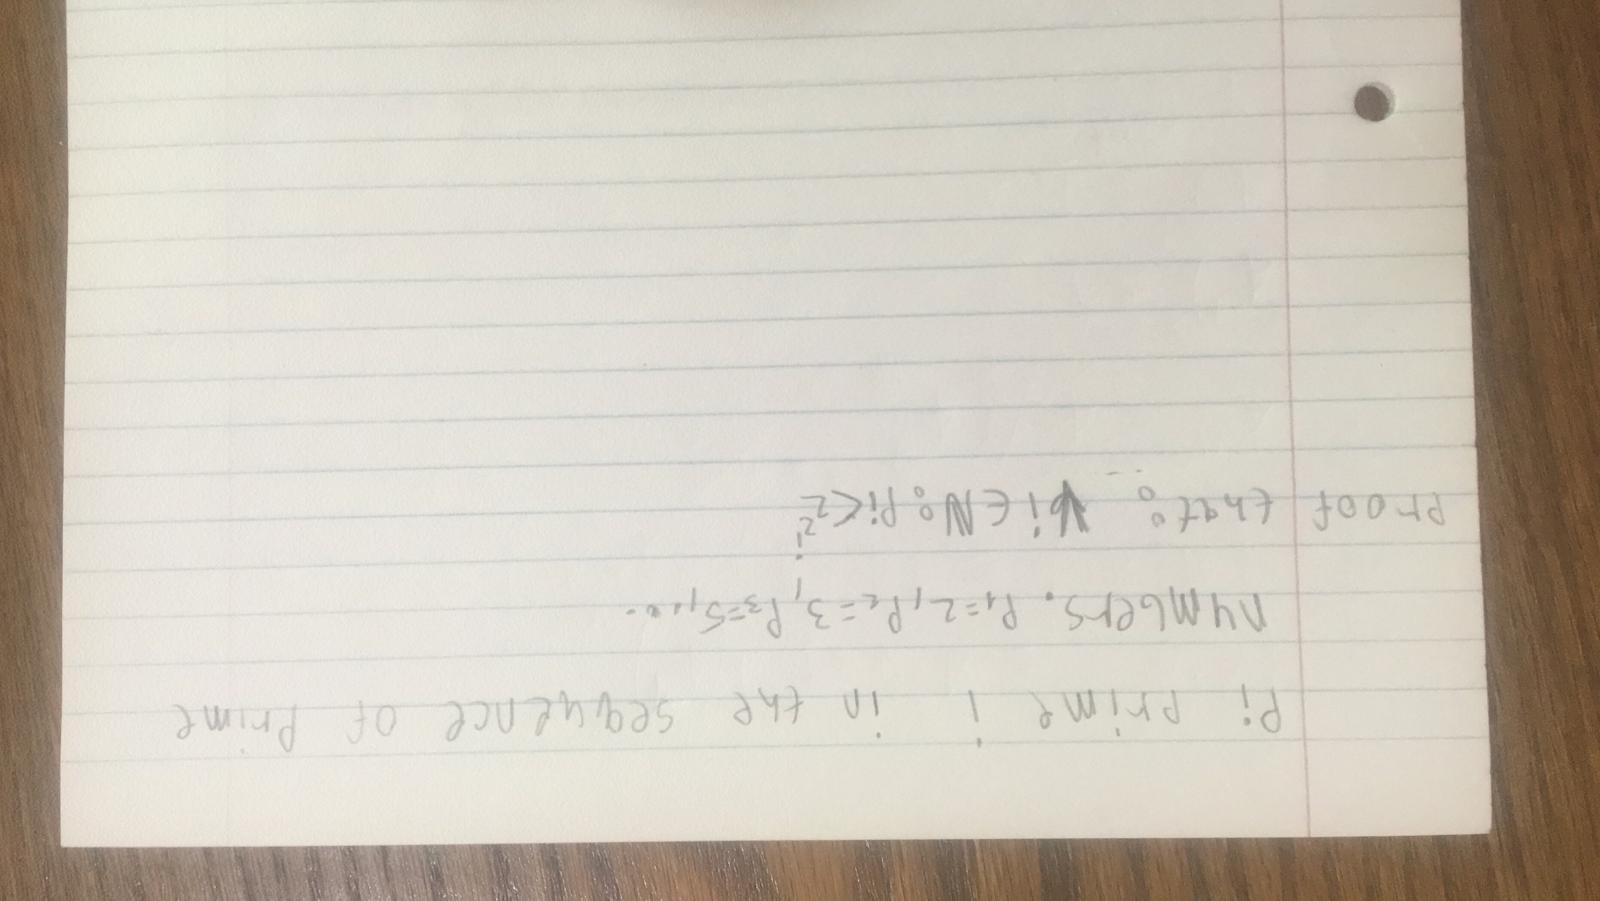 Pi prime i in the sequence of prime
numbers. P₁=2, P₂=3, P₃=5,...
proof that: ∀i∈N: Pi<2^2^i